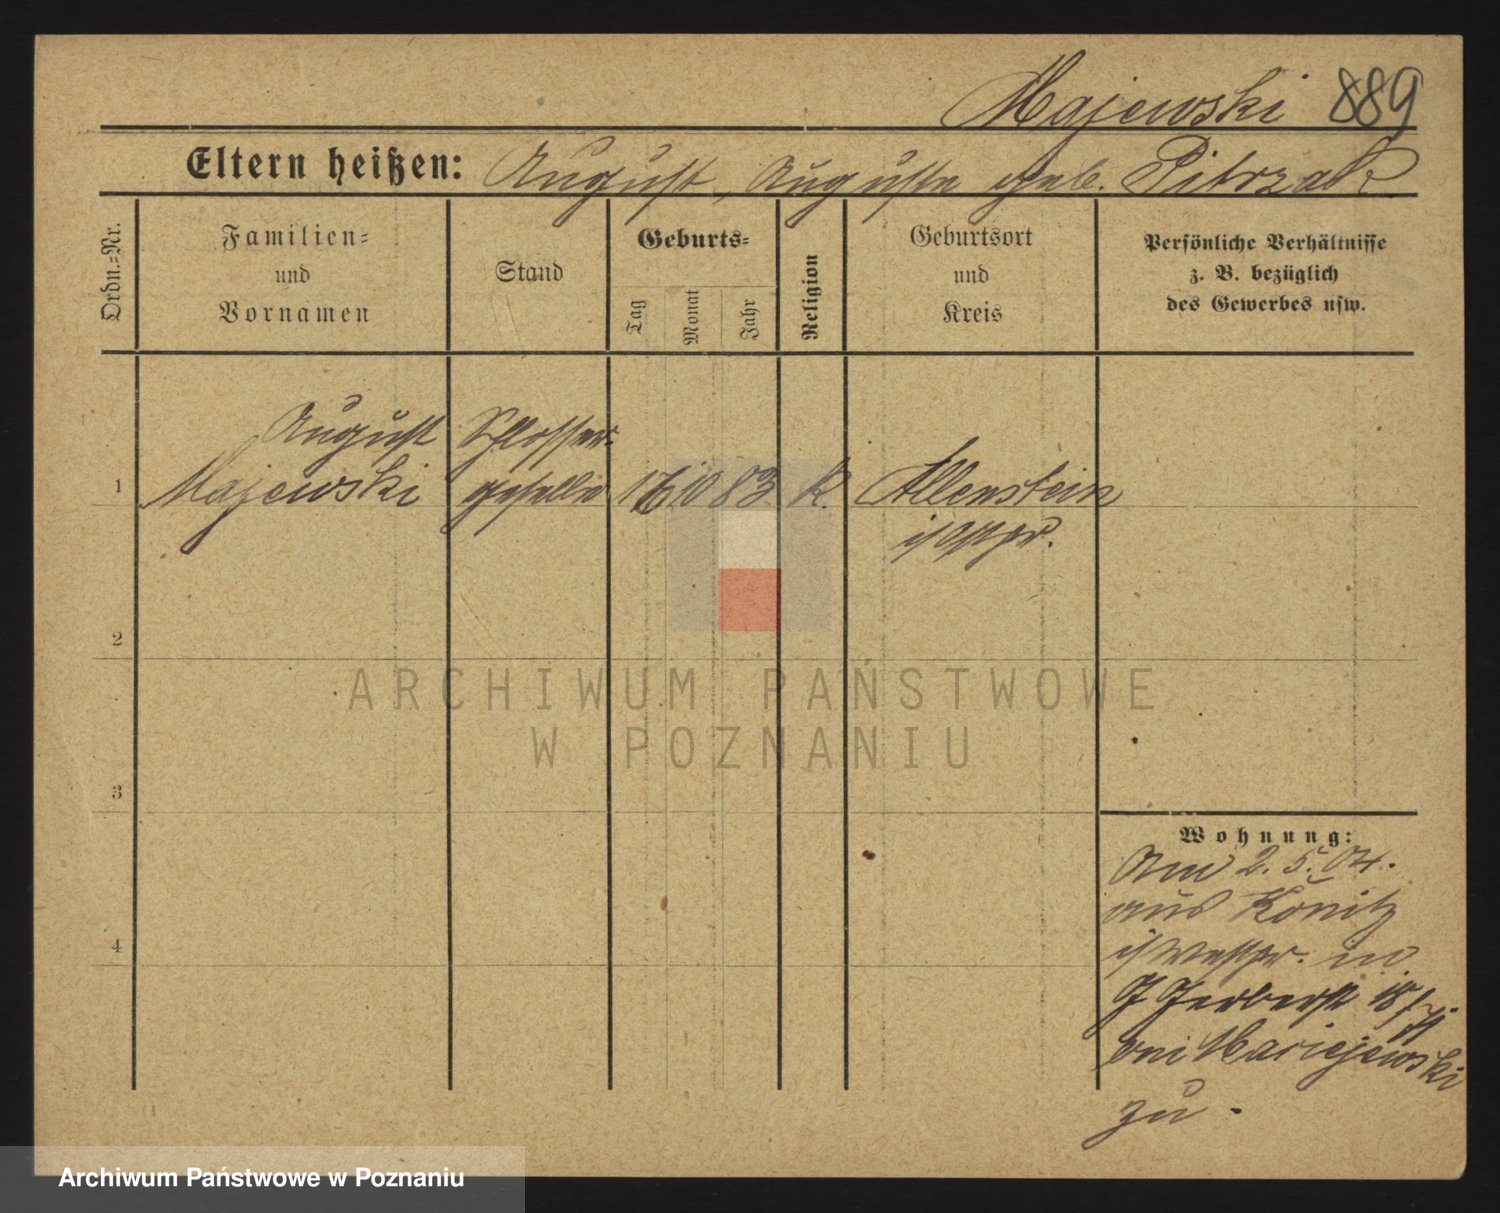 Majewski 889
Eltern heißen: August, Auguste geb. Pitrzak
Ordn.=Nr.
Familien=
und
Vornamen
Stand
Geburts=
Tag
Monat
Jahr
Religion
Geburtsort
und
Kreis
Persönliche Verhältnisse
z. B. bezüglich
des Gewerbes usw.
August Schlosser=
1 Majewski geselle 10 83 k. Allenstein
i/Ostpr.
2
3
4
ARCHIWUM PAŃSTWOWE
W POZNANIU
Wohnung:
Am 2.5.04.
aus Könitz
i/Westpr. in
18/
bei Maciejewski
zu.
Archiwum Państwowe w Poznaniu